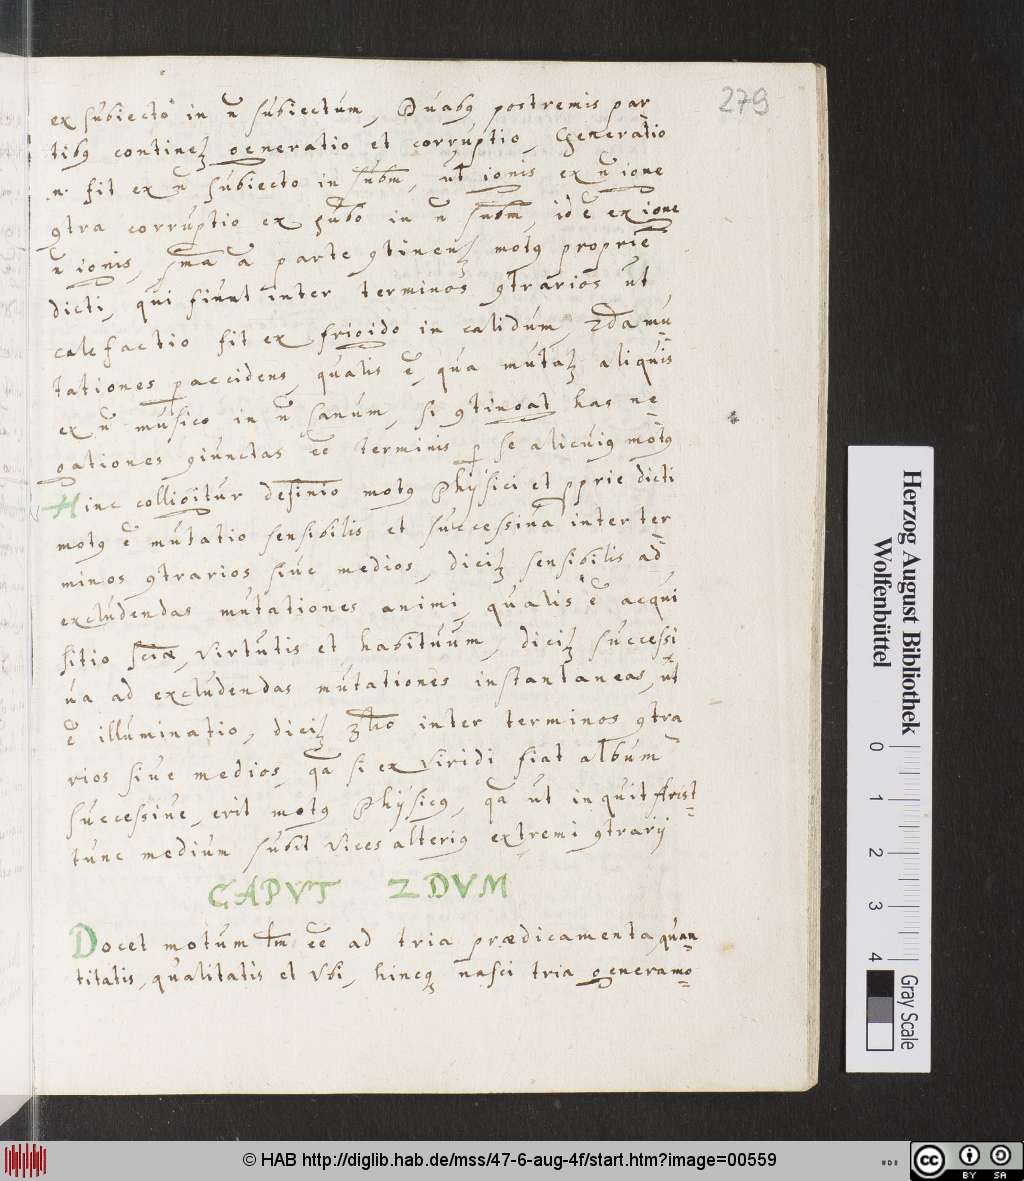 279
ex subiecto in n̄ subiectum, Duabꝰ postremis par
tibꝰ continetꝫ generatio et corruptio, Generatio
n. fit ex n̄ subiecto in subm̄, ut ignis ex n̄ igne
ꝯtra corruptio ex subō in n̄ subm̄, id ē ex igne
n̄ ignis, parte ꝯtinentꝫ motꝰ proprie
dicti, qui fiunt inter terminos ꝯtrarios ut
calefactio fit ex frigido in calidum, 2da mu
tationes ꝑ accidens, qualis ē, qua mutatꝫ aliquis
ex n̄ musico in n̄ sanum, si ꝯtingat has ne-
gationes ꝯiunctas eē terminis ꝑ se alicuiꝰ motꝰ
Hinc colligitur definio motꝰ Physici et pprie dicti
motꝰ ē mutatio sensibilis et successiva inter ter
minos ꝯtrarios sive medios, dicitꝫ sensibilis ad
excludendas mutationes animi, qualis ē acqui
sitio sciæ, virtutis et habituum, dicitꝫ successi
va ad excludendas mutationes instantaneas, ut
ē illuminatio, dicitꝫ 3tio inter terminos ꝯtra
rios sive medios, qa si ex viridi fiat album
successive, erit motꝰ Physicꝰ, qa ut inquit
tunc medium subit vices alteriꝰ extremi ꝯtrarij
CAPVT 2DVM
Docet motum tm̄ eē ad tria prædicamenta quan=
titatis, qualitatis et Vbi, hincqꝫ nasci tria genera mo=
Herzog August Bibliothek
Wolfenbüttel
0 1 2 3 4
Gray Scale
© HAB http://diglib.hab.de/mss/47-6-aug-4f/start.htm?image=00559
cc BY SA